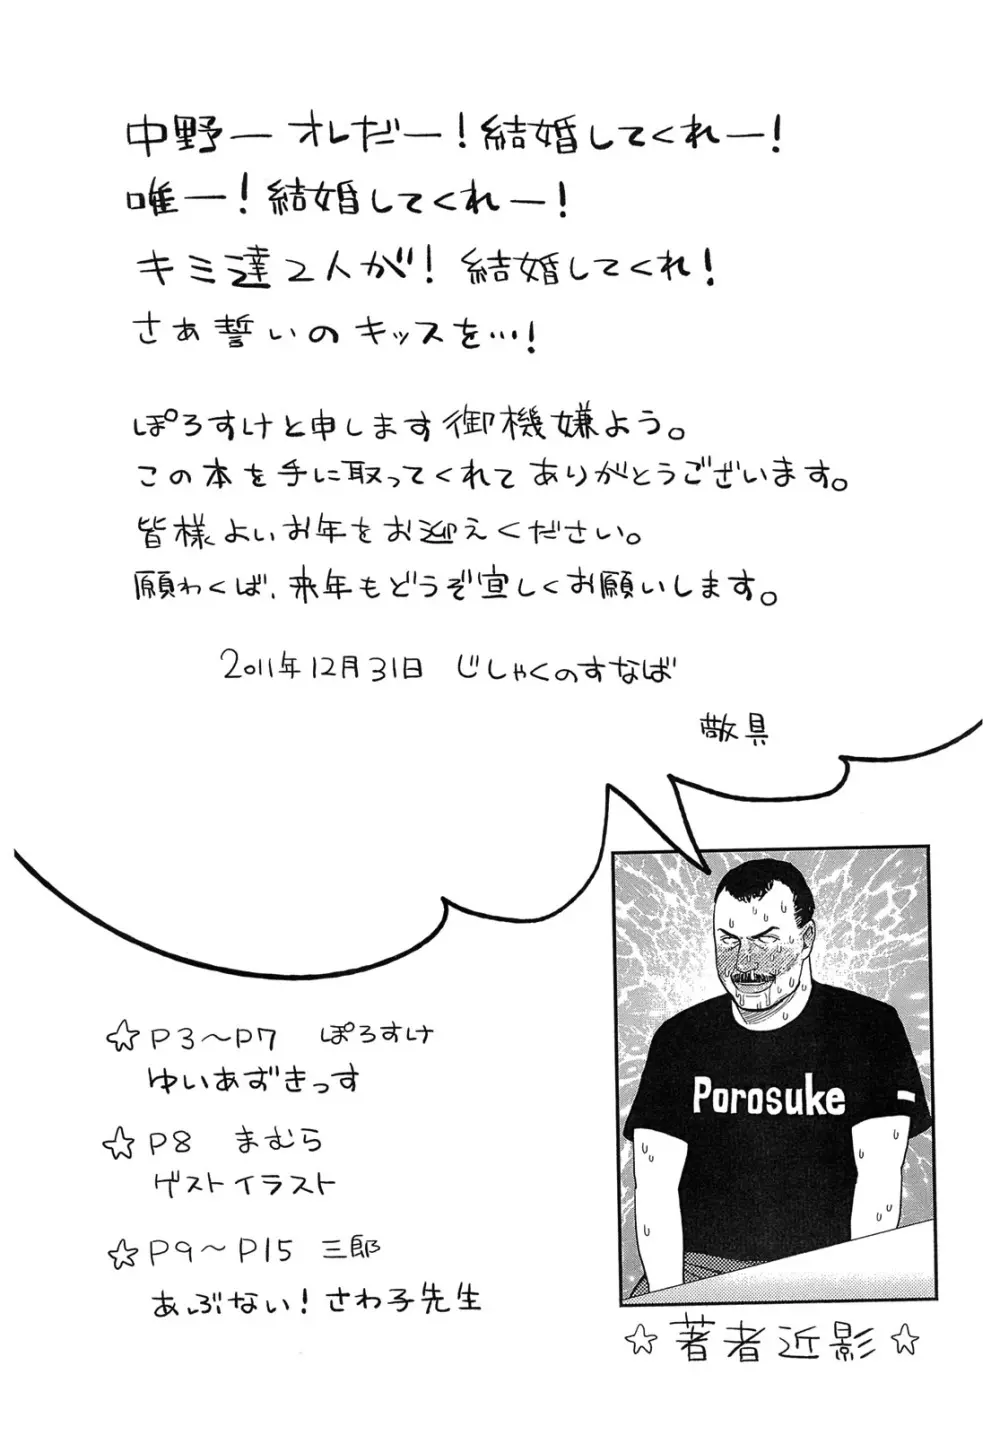 中野ー オレだー！結婚してくれー！
唯ー！結婚してくれー！
キミ達2人が！結婚してくれ！
さぁ誓いのキッスを…！
ぽろすけと申します御機嫌よう。
この本を手に取ってくれてありがとうございます。
皆様よいお年をお迎えください。
願わくば、来年もどうぞ宜しくお願いします。
2011年12月31日 じしゃくのすなば
敬具
☆P3～P7 ぽろすけ
ゆいあずきっす
☆P8 まむら
ゲストイラスト
☆P9～P15 三郎
あぶない！さわ子先生
Porosuke
☆著者近影☆